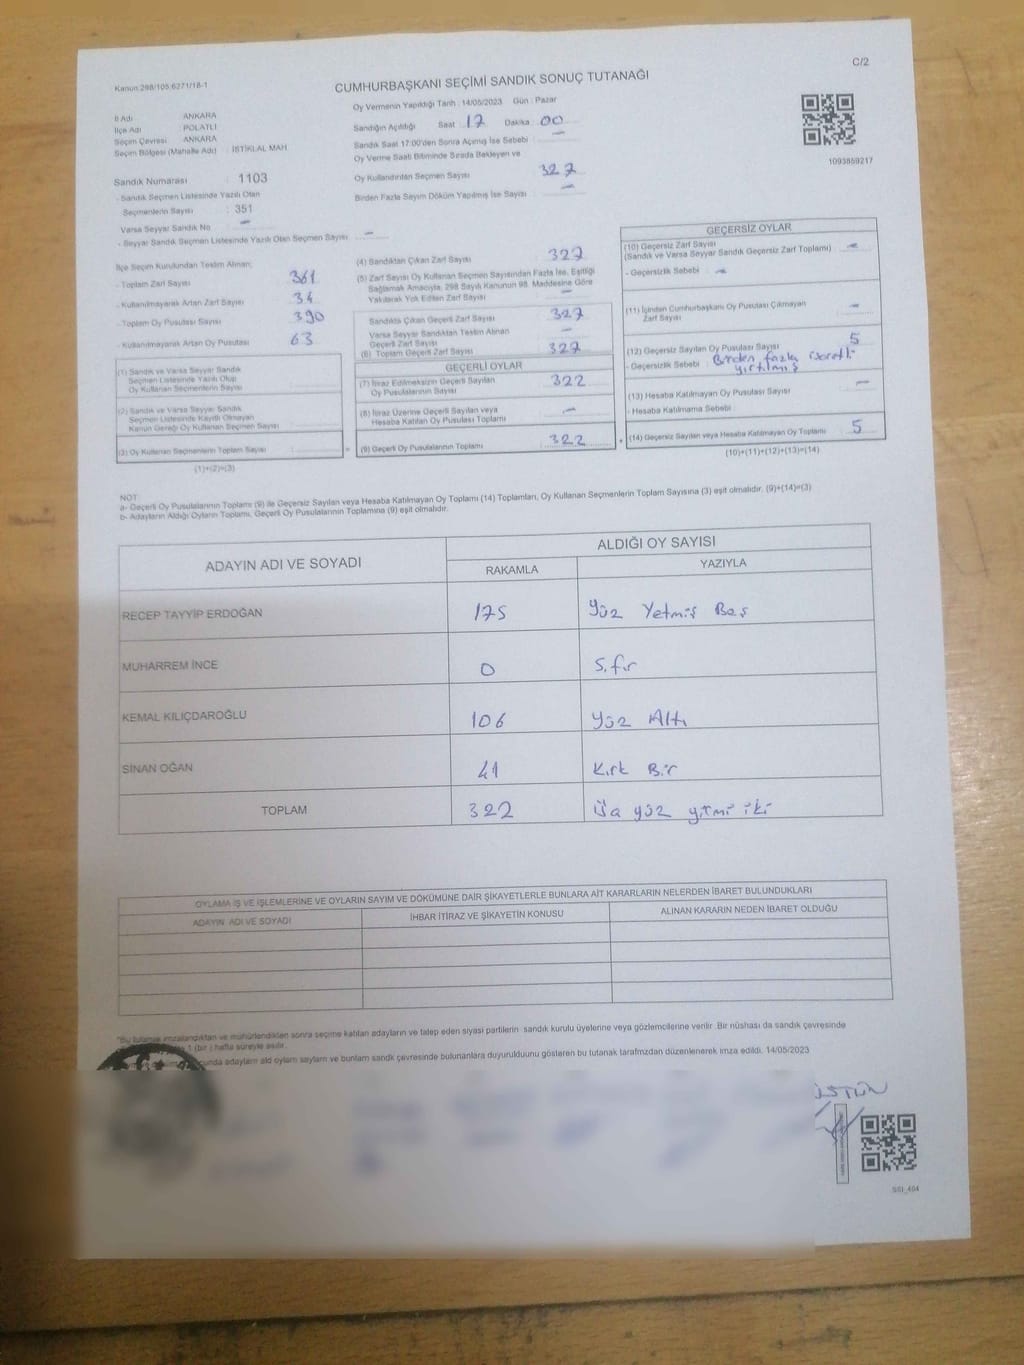 C/2
Kanun 298/105 6271/18-1
CUMHURBAŞKANI SEÇİMİ SANDIK SONUÇ TUTANAĞI
Oy Vermenin Yapıldığı Tarih : 14/05/2023 Gün : Pazar
İl Adı ANKARA
İlçe Adı POLATLI
Seçim Çevresi ANKARA
Seçim Bölgesi (Mahalle Adı) : İSTİKLAL MAH
Sandık Numarası : 1103
- Sandık Seçmen Listesinde Yazılı Olan
Seçmenlerin Sayısı : 351
Varsa Seyyar Sandık No : –
- Seyyar Sandık Seçmen Listesinde Yazılı Olan Seçmen Sayısı : –
Sandığın Açıldığı Saat : 17 Dakika : 00
Sandık Saat 17:00'den Sonra Açılmış İse Sebebi : –
Oy Verme Saati Bitiminde Sırada Bekleyen ve
Oy Kullandırılan Seçmen Sayısı : 327
Birden Fazla Sayım Döküm Yapılmış İse Sayısı : –
1093859217
İlçe Seçim Kurulundan Teslim Alınan;
- Toplam Zarf Sayısı : 361
- Kullanılmayarak Artan Zarf Sayısı : 34
- Toplam Oy Pusulası Sayısı : 390
- Kullanılmayarak Artan Oy Pusulası : 63
(1) Sandık ve Varsa Seyyar Sandık
Seçmen Listesinde Yazılı Olup
Oy Kullanan Seçmenlerin Sayısı :
(2) Sandık ve Varsa Seyyar Sandık
Seçmen Listesinde Kayıtlı Olmayan
Kanun Gereği Oy Kullanan Seçmen Sayısı :
(3) Oy Kullanan Seçmenlerin Toplam Sayısı :
(1)+(2)=(3)
(4) Sandıktan Çıkan Zarf Sayısı : 327
(5) Zarf Sayısı Oy Kullanan Seçmen Sayısından Fazla İse, Eşitliği
Sağlamak Amacıyla, 298 Sayılı Kanunun 98. Maddesine Göre
Yakılarak Yok Edilen Zarf Sayısı : –
Sandıkta Çıkan Geçerli Zarf Sayısı : 327
Varsa Seyyar Sandıktan Teslim Alınan
Geçerli Zarf Sayısı : –
(6) Toplam Geçerli Zarf Sayısı : 327
GEÇERLİ OYLAR
(7) İtiraz Edilmeksizin Geçerli Sayılan
Oy Pusulasının Sayısı : 322
(8) İtiraz Üzerine Geçerli Sayılan veya
Hesaba Katılan Oy Pusulası Toplamı : –
(9) Geçerli Oy Pusulalarının Toplamı : 322
GEÇERSİZ OYLAR
(10) Geçersiz Zarf Sayısı
(Sandık ve Varsa Seyyar Sandık Geçersiz Zarf Toplamı) : –
- Geçersizlik Sebebi : –
(11) İçinden Cumhurbaşkanı Oy Pusulası Çıkmayan
Zarf Sayısı : –
(12) Geçersiz Sayılan Oy Pusulası Sayısı : 5
- Geçersizlik Sebebi : Birden fazla işaretli
yırtılmış
(13) Hesaba Katılmayan Oy Pusulası Sayısı : –
- Hesaba Katılmama Sebebi :
(14) Geçersiz Sayılan veya Hesaba Katılmayan Oy Toplamı : 5
(10)+(11)+(12)+(13)=(14)
NOT
a- Geçerli Oy Pusulalarının Toplamı (9) ile Geçersiz Sayılan veya Hesaba Katılmayan Oy Toplamı (14) Toplamları, Oy Kullanan Seçmenlerin Toplam Sayısına (3) eşit olmalıdır. (9)+(14)=(3)
b- Adayların Aldığı Oyların Toplamı, Geçerli Oy Pusulalarının Toplamına (9) eşit olmalıdır.
ADAYIN ADI VE SOYADI
ALDIĞI OY SAYISI
RAKAMLA YAZIYLA
RECEP TAYYİP ERDOĞAN 175 Yüz Yetmiş Beş
MUHARREM İNCE 0 Sıfır
KEMAL KILIÇDAROĞLU 106 Yüz Altı
SİNAN OĞAN 41 Kırk Bir
TOPLAM 322 yüz yirmi iki
OYLAMA İŞ VE İŞLEMLERİNE VE OYLARIN SAYIM VE DÖKÜMÜNE DAİR ŞİKAYETLERLE BUNLARA AİT KARARLARIN NELERDEN İBARET BULUNDUKLARI
ADAYIN ADI VE SOYADI İHBAR İTİRAZ VE ŞİKAYETİN KONUSU ALINAN KARARIN NEDEN İBARET OLDUĞU
*Bu tutanak imzalandıktan ve mühürlendikten sonra seçime katılan adayların ve talep eden siyasi partilerin sandık kurulu üyelerine veya gözlemcilerine verilir. Bir nüshası da sandık çevresinde
1 (bir) hafta süreyle asılır.
adayların aldığı oyların sayıların ve bunların sandık çevresinde bulunanlara duyurulduğunu gösteren bu tutanak tarafımızdan düzenlenerek imza edildi. 14/05/2023
ÜSTÜN